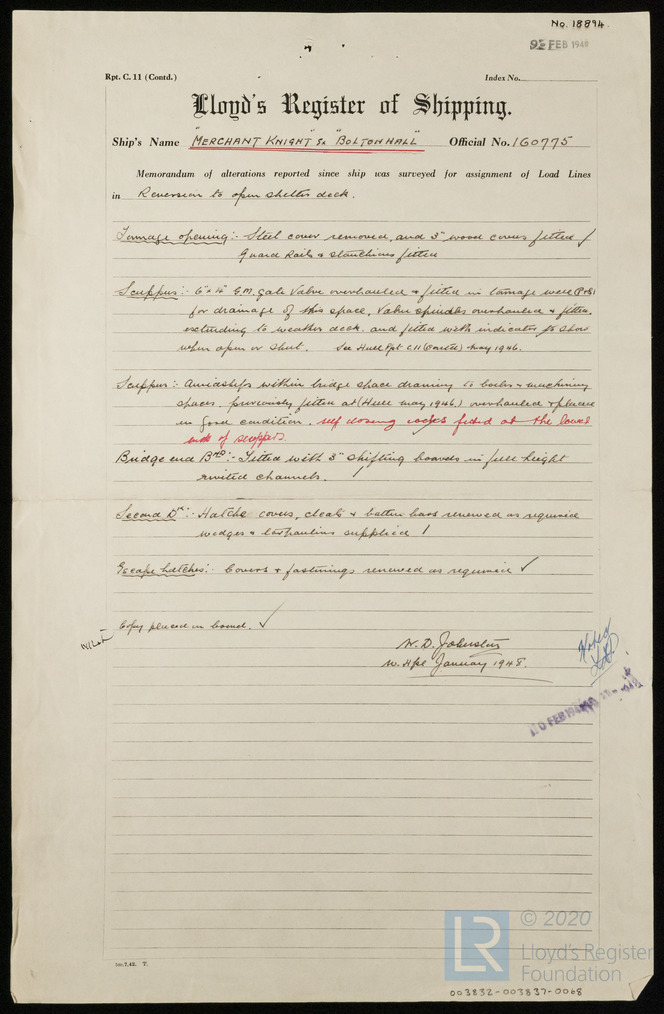 No. 18894.
FEB 1948
Rpt. C. 11 (Contd.)
Index No.
Lloyd's Register of Shipping.
Ship's Name "MERCHANT KNIGHT" Ex "BOLTONHALL" Official No. 160775
Memorandum of alterations reported since ship was surveyed for assignment of Load Lines
in Reversion to open shelter deck.
Tonnage opening:- Steel cover removed, and 3" wood covers fitted
Guard Rails & stanchions fitted
Scuppers:- 6" x 4" G.M. gate valve overhauled & fitted in tonnage well (P&S)
for drainage of this space, Valve spindles overhauled & fitted,
extending to weather deck, and fitted with indicator to show
when open or shut. See Hull Rpt C.11 (Contd) May 1946.
Scuppers:- Amidships within bridge space draining to boiler & machinery
spaces, previously fitted at (Hull May 1946) overhauled & placed
in good condition. self closing cocks fitted at the lower
ends of scuppers.
Bridge end Bhd:- Fitted with 3" shifting boards in full height
riveted channels.
Second Dk:- Hatch covers, cleats & batten bars renewed as required
wedges & tarpaulins supplied
Escape hatches:- Covers & fastenings renewed as required
Copy placed on board.
W. D. Johnston
W. Hpl January 1948.
Noted
FEB 1948
5m.7.42. T.
LR
© 2020
Lloyd's Register
Foundation
003832-003837-0068